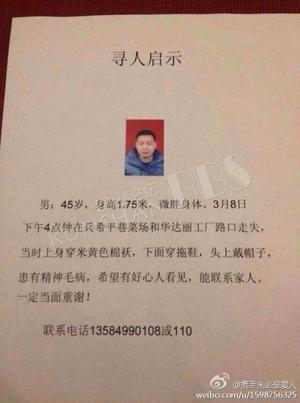 寻人启示
男：45岁，身高1.75米，微胖身体。3月8日
下午4点钟在兵希平巷菜场和华达丽工厂路口走失，
当时上身穿米黄色棉袄，下面穿拖鞋，头上戴帽子，
患有精神毛病，希望有好心人看见，能联系家人。
一定当面重谢！
联系电话13584990108或110
KUNSHAN BBS
@携手未必是爱人
weibo.com/u/1598756325